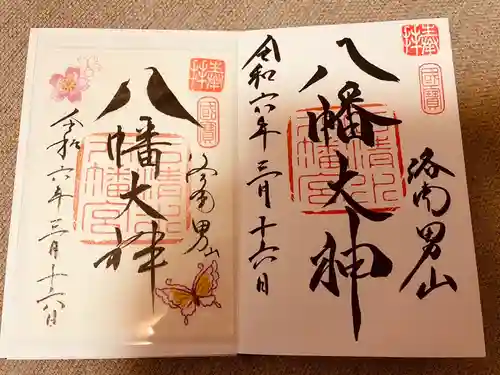 奉拝
國寶
洛南男山
八幡大神
石清水八幡宮
令和六年三月十六日
奉拝
國寶
洛南男山
八幡大神
石清水八幡宮
令和六年三月十六日